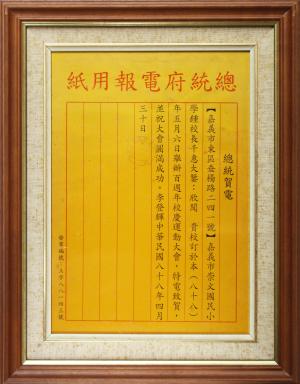 總統府電報用紙
總統賀電
【嘉義市東區垂楊路二四一號】嘉義市崇文國民小
學鍾校長千息大鑒：欣聞　貴校訂於本（八十八）
年五月六日舉辦百週年校慶運動大會，特電致賀，
並祝大會圓滿成功。李登輝中華民國八十八年四月
三十日
發電編號：文字八八一四三號